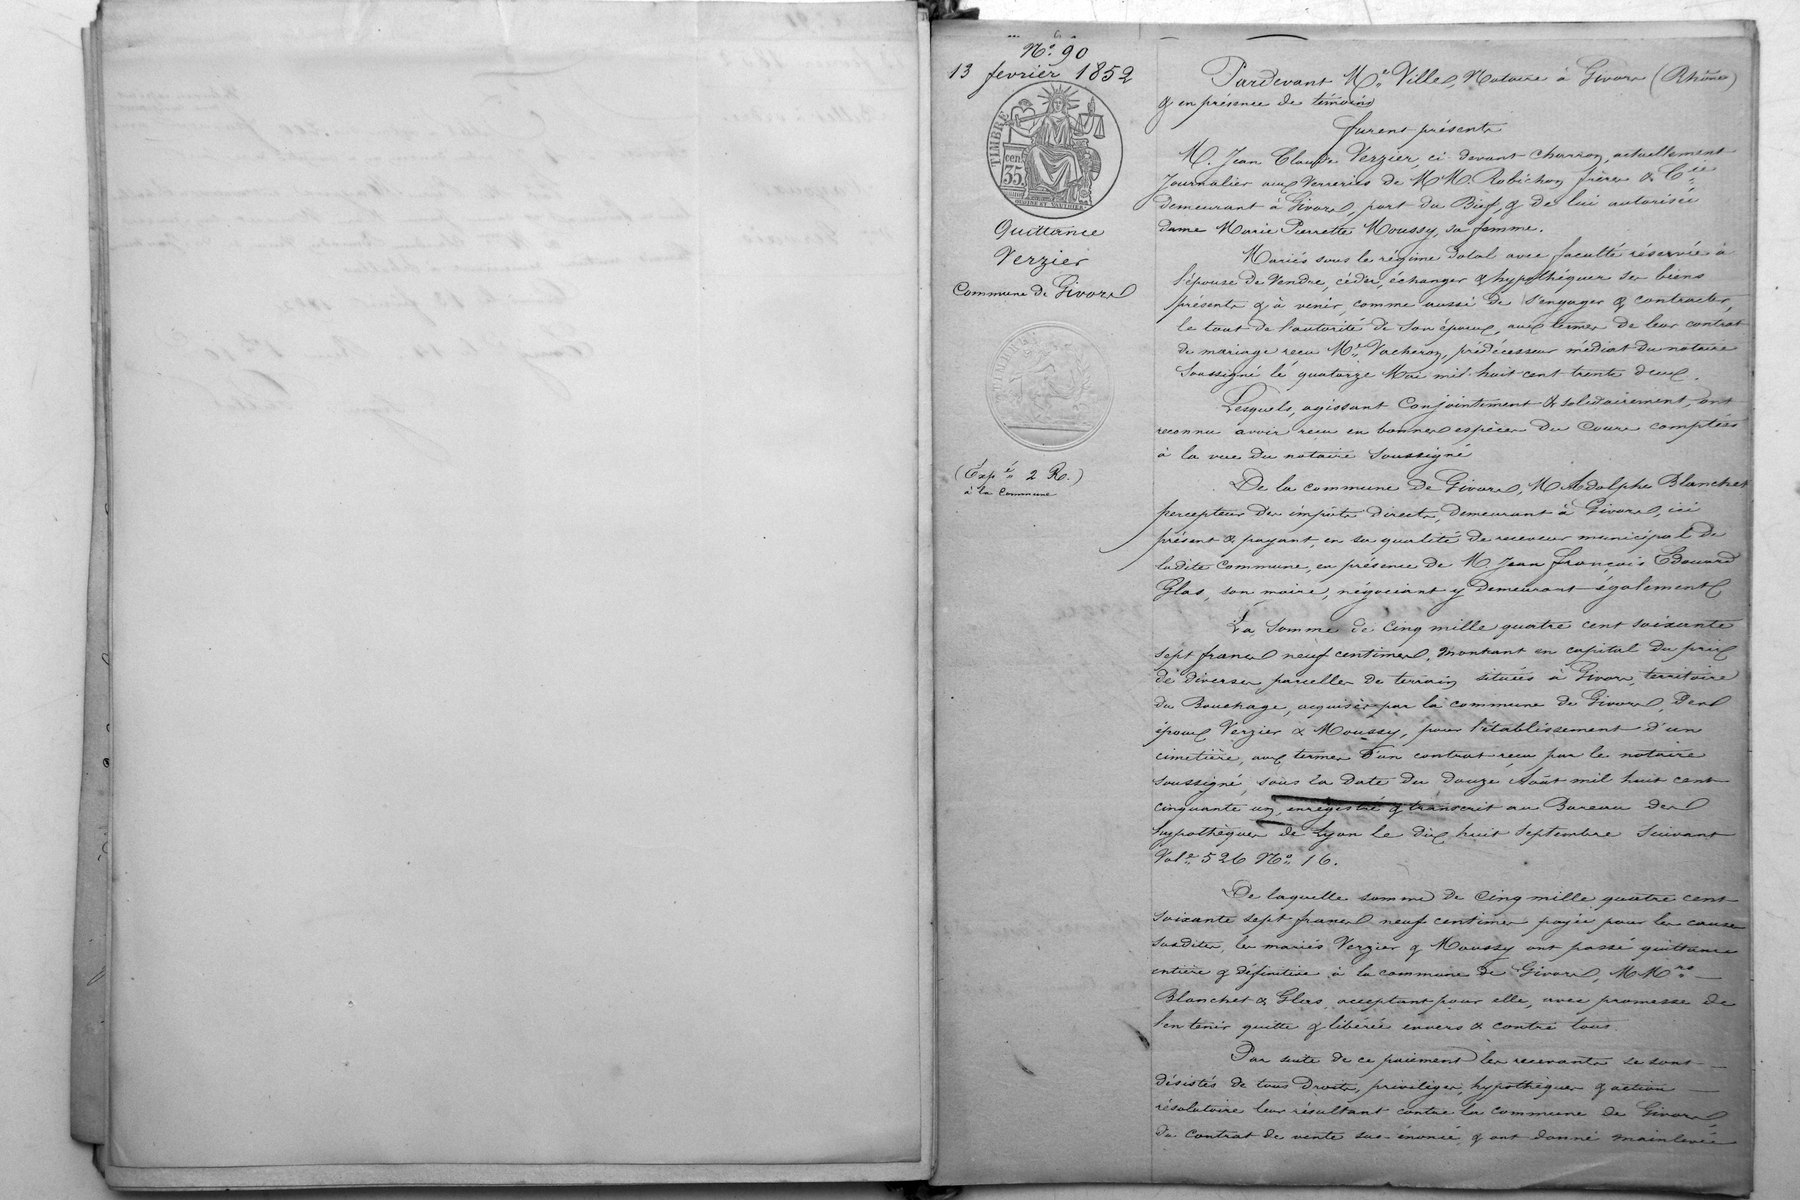 N° 90
13 fevrier 1852
TIMBRE
cen
35
Quittance
Verzier
Commune de Givors
TIMBRE
(Expé 2 R.)
à la Commune
Pardevant Me Ville, Notaire à Givors (Rhône)
& en présence de témoins
furent présents
M. Jean Claude Verzier, ci devant charron, actuellement
journalier aux Verreries de M.M. Robichon frères & Cie
demeurant à Givors, port du Bief, & de lui autorisée
dame Marie Pierrette Moussy, sa femme.
Mariés sous le régime Dotal avec faculté réservée à
l'épouse de Vendre, céder, échanger & hypothéquer ses biens
présents & à venir, comme aussi de s'engager & contracter,
le tout de l'autorité de son époux, aux termes de leur contrat
de mariage reçu Me Vacheron, prédécesseur médiat du notaire
soussigné le quatorze Mai mil huit cent trente deux.
Lesquels, agissant Conjointement & solidairement, ont
reconnu avoir reçu en bonnes espèces du Cours comptées
à la vue du notaire soussigné
De la commune de Givors, M. Adolphe Blanchet
percepteur des impôts directs, demeurant à Givors, ici
présent & payant, en sa qualité de receveur municipal de
ladite Commune, en présence de M. Jean François Edouard
Glas, son maire, négociant y demeurant également
La Somme de Cinq mille quatre cent soixante
sept francs neuf centimes, montant en capital du prix
de diverses parcelles de terrain situées à Givors, territoire
du Bouchage, acquises par la commune de Givors, des
époux Verzier & Moussy, pour l'établissement d'un
cimetière, aux termes d'un contrat reçu par le notaire
soussigné, sous la Date du douze Août mil huit cent
cinquante un, enregistré & transcrit au Bureau des
hypothèques de Lyon le dix huit septembre suivant
Vole 526 N° 16.
De laquelle somme de Cinq mille quatre cent
soixante sept francs neuf centimes payée pour les causes
susdites, les mariés Verzier & Moussy ont passé quittance
entière & définitive à la commune de Givors, MMrs
Blanchet & Glas acceptant pour elle, avec promesse de
l'en tenir quitte & libérée envers & contre tous.
Par suite de ce paiement les recevants se sont
désistés de tous Droits, privilèges, hypothèques & action
résolutoire leur résultant contre la commune de Givors,
du contrat de vente sus énoncé & ont donné mainlevée